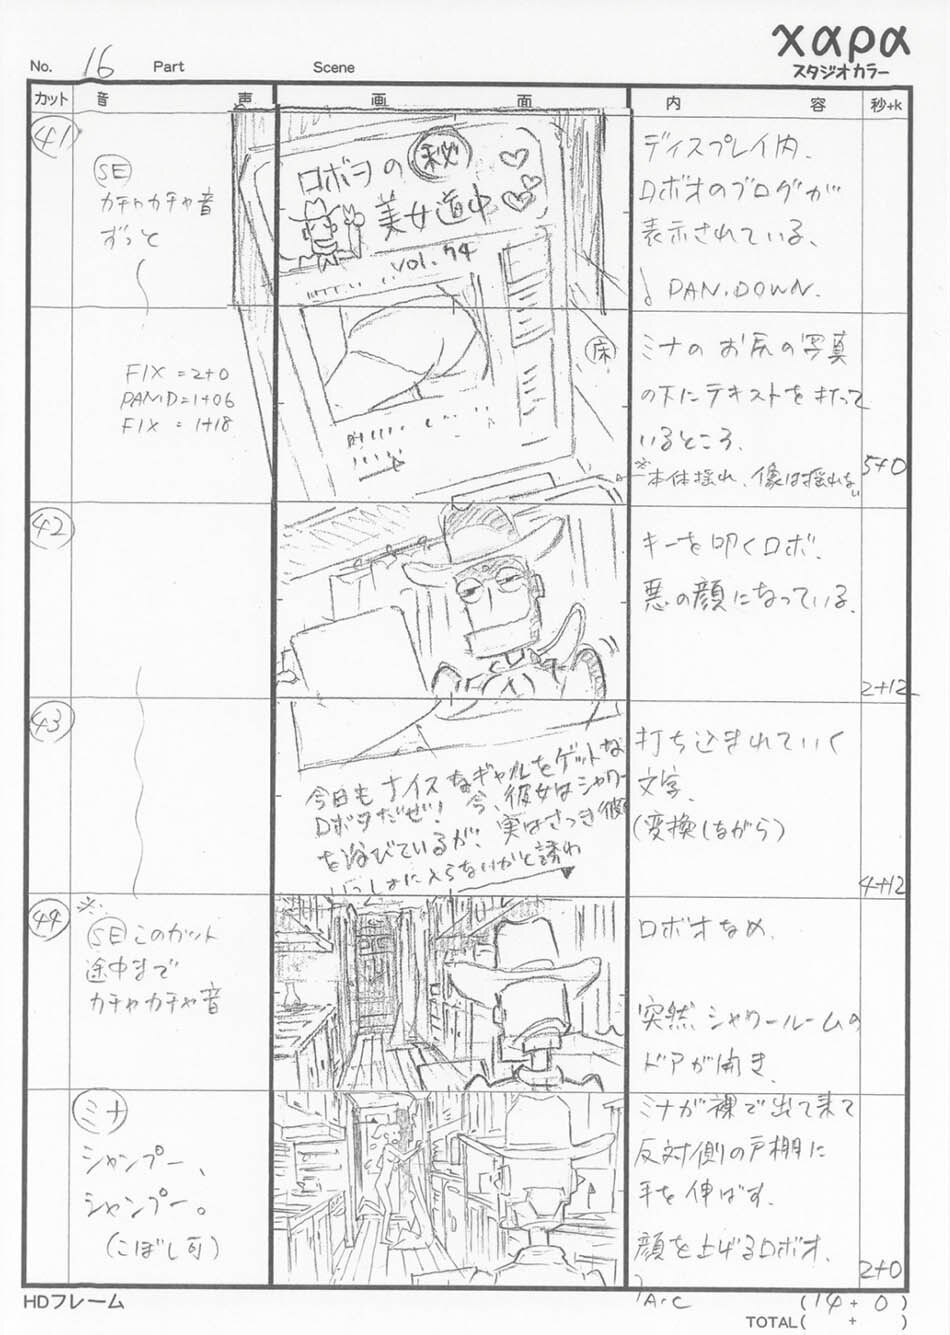 χαρα
スタジオカラー
No. 16 Part Scene
カット 音 声 画 面 内 容 秒+k
41
SE
カチャカチャ音
ずっと
ロボヲの㊙
美女道中
vol.74
ディスプレイ内、
ロボオのブログが
表示されている、
PAN.DOWN.
FIX = 2+0
PAN.D = 1+06
FIX = 1+18
床
ミナのお尻の写真
の下にテキストを打って
いるところ.
※本体揺れ、像は揺れない
5+0
42
キーを叩くロボ.
悪の顔になっている.
2+12
43
今日もナイスなギャルをゲットな
ロボヲだぜ! 今、彼女はシャワー
を浴びているが、実はさっき彼
いっしょに入らないかと誘わ
打ち込まれていく
文字.
(変換しながら)
4+12
44
※
SE このカット
途中まで
カチャカチャ音
ロボオなめ.
突然シャワールームの
ドアが開き.
ミナ
シャンプー、
シャンプー。
(こぼし可)
ミナが裸で出て来て
反対側の戸棚に
手を伸ばす.
顔を上げるロボオ.
2+0
HDフレーム
Arc
(14 + 0)
TOTAL( + )